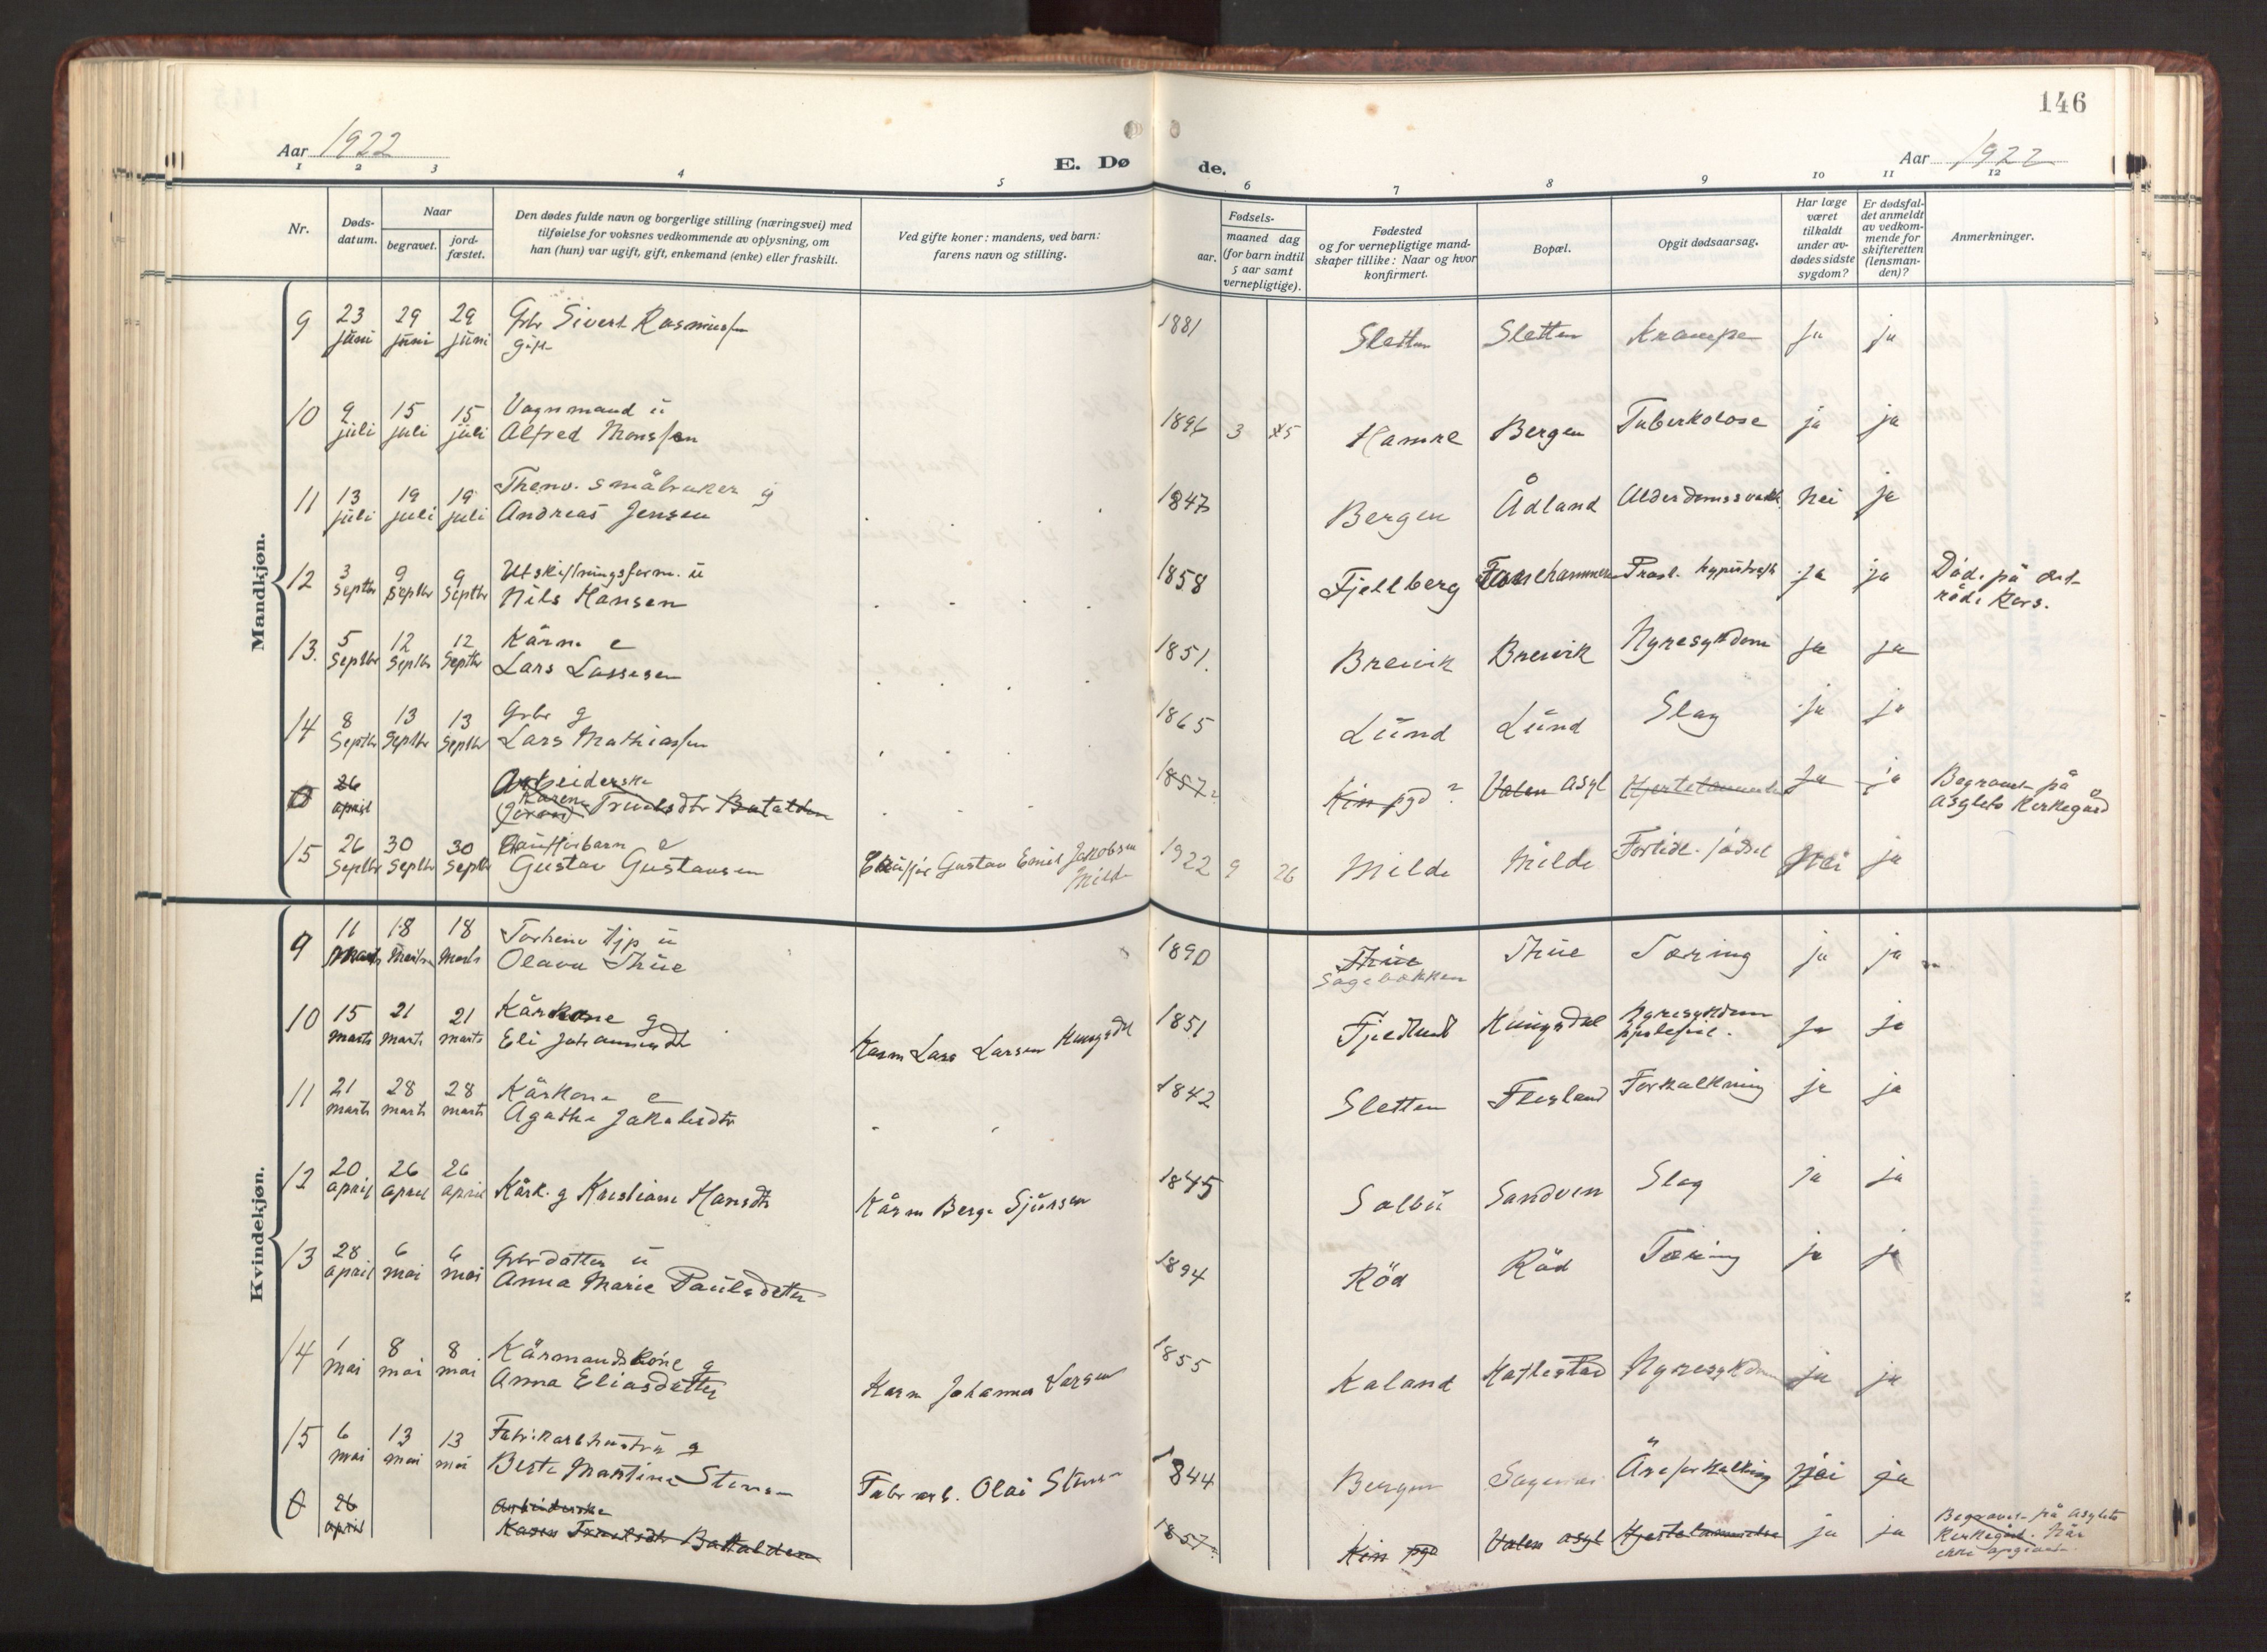 146
Aar 1922
E. Dø
de.
Aar 1922
1 2 3 4 5 6 7 8 9 10 11 12
Nr.
Døds-
datum.
Naar
begravet.
jord-
fæstet.
Den dødes fulde navn og borgerlige stilling (næringsvei) med
tilføielse for voksnes vedkommende av oplysning, om
han (hun) var ugift, gift, enkemand (enke) eller fraskilt.
Ved gifte koner: mandens, ved barn:
farens navn og stilling.
Fødsels-
aar.
maaned dag
(for barn indtil
5 aar samt
vernepligtige).
Fødested
og for vernepligtige mand-
skaper tillike: Naar og hvor
konfirmert.
Bopæl.
Opgit dødsaarsag.
Har læge
været
tilkaldt
under av-
dødes sidste
sygdom?
Er dødsfal-
det anmeldt
av vedkom-
mende for
skifteretten
(lensman-
den)?
Anmerkninger.
Mandkjøn.
9 23 juni 29 juni 29 juni Gbr Sivert Rasmussen 1881 Sletten Sletten Krampe ja ja
gift
10 9 juli 15 juli 15 juli Vognmand ü
Alfred Monssen 1896 3 5 Hamre Bergen Tuberkolose ja ja
11 13 juli 19 juli 19 juli småbruker g
Andreas Jensen 1847 Bergen Ådland Alderdomssvakh. Nei ja
12 3 Septbr 9 Septbr 9 Septbr Utskiftningsform. ü
Nils Hansen 1858 Fjellberg Prost. hypertrofi ja ja Död på det
röde Kors.
13. 5 Septbr 12 Septbr 12 Septbr Kårm. e
Lars Lassesen 1851. Breivik Breivik Nyresykdom ja ja
14 8 Septbr 13 Septbr 13 Septbr Gbr g
Lars Mathiassen 1865 Lünd Lünd Slag ja ja
0 26 april Arbeiderske
Karen Truelsdtr Batalden 1857 Kin pgd ? Valen asyl Hjertelammelse ja ja Begravet på
asylets Kirkegård
15 26 Septbr 30 Septbr 30 Septbr barn e
Gustav Gustavsen Gustav Emil Jakobsen
Milde 1922 9 26 Milde Milde Fortidl. födsel Nei ja
Kvindekjøn.
9 11 Marts 18 Marts 18 Marts tjp ü
Olava Thue 1890 Thue
Sagebakken Thue Tæring ja ja
10 15 marts 21 marts 21 marts Kårkone g
Eli Johannesdt Kaarm Lars Larsen 1851 Nyresykdom
hjertefeil. ja ja
11 21 marts 28 marts 28 marts Kårkone e
Agathe Jakobsdtr 1842 Sletten Flesland Forkalkning ja ja
12 20 april 26 april 26 april Kårk. g Kristiane Hansdtr Kårm Berge Sjursen 1845 Salbü Sandven Slag ja ja
13 28 april 6 mai 6 mai Gbrdatter ü
Anna Marie Paulsdatter 1894 Röd Röd Tæring ja ja
14 1 mai 8 mai 8 mai Kårmandskone g
Anna Eliasdatter Karm Johannes Larsen 1855 Kaland Nyresykdom ja ja
15 6 mai 13 mai 13 mai Fabrikarbhustru g
Berte Martine Stensen Fabr arb. Olai 1844 Bergen Åreforkalkning Nei ja
0 26 april Arbeiderske
Karen Truelsdtr Batalden 1857. Kin pgd Valen asyl Hjertelammelse ja ja Begravet på asylets
Kirkegård. Når
ikke opgivet.